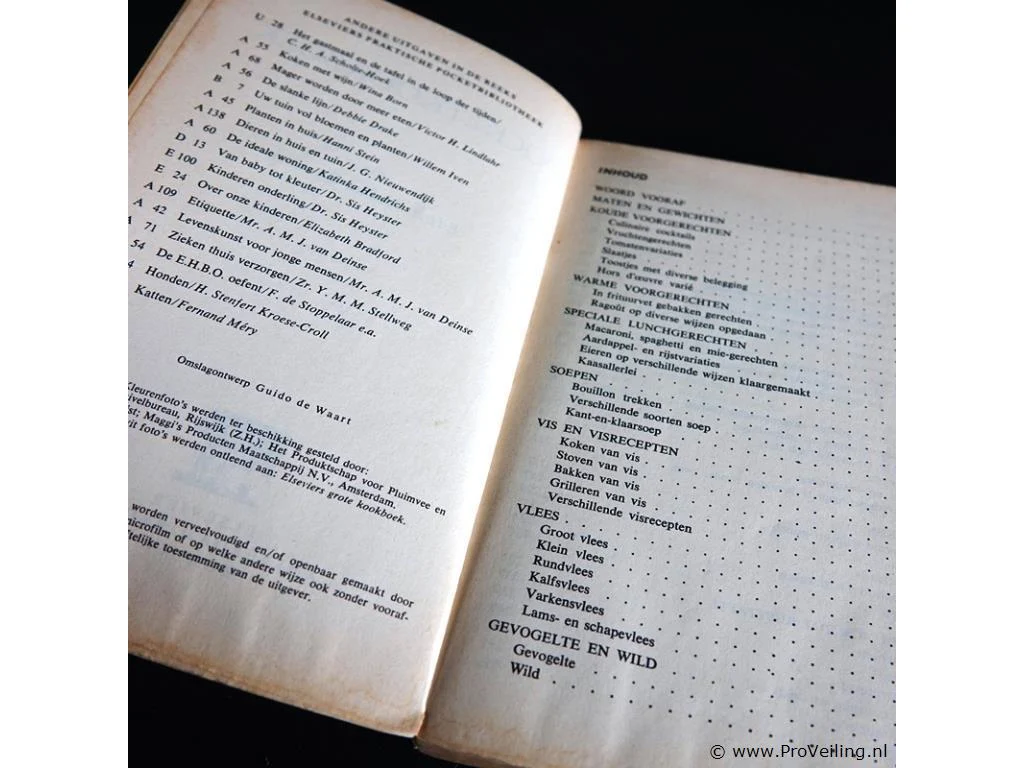 ANDERE UITGAVEN IN DE REEKS
ELSEVIERS PRAKTISCHE POCKETBIBLIOTHEEK
U 28 Het gastmaal en de tafel in de loop der tijden/
C. H. A. Scholte-Hoek
A 55 Koken met wijn/Wina Born
A 68 Mager worden door meer eten/Victor H. Lindlahr
A 56 De slanke lijn/Debbie Drake
B 7 Uw tuin vol bloemen en planten/Willem Iven
A 45 Planten in huis/Hanni Stein
A 138 Dieren in huis en tuin/J. G. Nieuwendijk
A 60 De ideale woning/Katinka Hendrichs
D 13 Van baby tot kleuter/Dr. Sis Heyster
E 100 Kinderen onderling/Dr. Sis Heyster
E 24 Over onze kinderen/Elizabeth Bradford
A 109 Etiquette/Mr. A. M. J. van Deinse
A 42 Levenskunst voor jonge mensen/Mr. A. M. J. van Deinse
71 Zieken thuis verzorgen/Zr. Y. M. M. Stellweg
54 De E.H.B.O. oefent/F. de Stoppelaar e.a.
4 Honden/H. Stenfert Kroese-Croll
Katten/Fernand Méry
Omslagontwerp Guido de Waart
Kleurenfoto's werden ter beschikking gesteld door:
ivelbureau, Rijswijk (Z.H.); Het Produktschap voor Pluimvee en
st; Maggi's Producten Maatschappij N.V., Amsterdam.
it foto's werden ontleend aan: Elseviers grote kookboek.
worden verveelvoudigd en/of openbaar gemaakt door
microfilm of op welke andere wijze ook zonder vooraf-
telijke toestemming van de uitgever.
INHOUD
WOORD VOORAF
MATEN EN GEWICHTEN
KOUDE VOORGERECHTEN
Culinaire cocktails
Vruchtengerechten
Tomatenvariaties
Slaatjes
Toostjes met diverse belegging
Hors d'œuvre varié
WARME VOORGERECHTEN
In frituurvet gebakken gerechten
Ragoût op diverse wijzen opgedaan
SPECIALE LUNCHGERECHTEN
Macaroni, spaghetti en mie-gerechten
Aardappel- en rijstvariaties
Eieren op verschillende wijzen klaargemaakt
Kaasallerlei
SOEPEN
Bouillon trekken
Verschillende soorten soep
Kant-en-klaarsoep
VIS EN VISRECEPTEN
Koken van vis
Stoven van vis
Bakken van vis
Grilleren van vis
Verschillende visrecepten
VLEES
Groot vlees
Klein vlees
Rundvlees
Kalfsvlees
Varkensvlees
Lams- en schapevlees
GEVOGELTE EN WILD
Gevogelte
Wild
© www.ProVeiling.nl